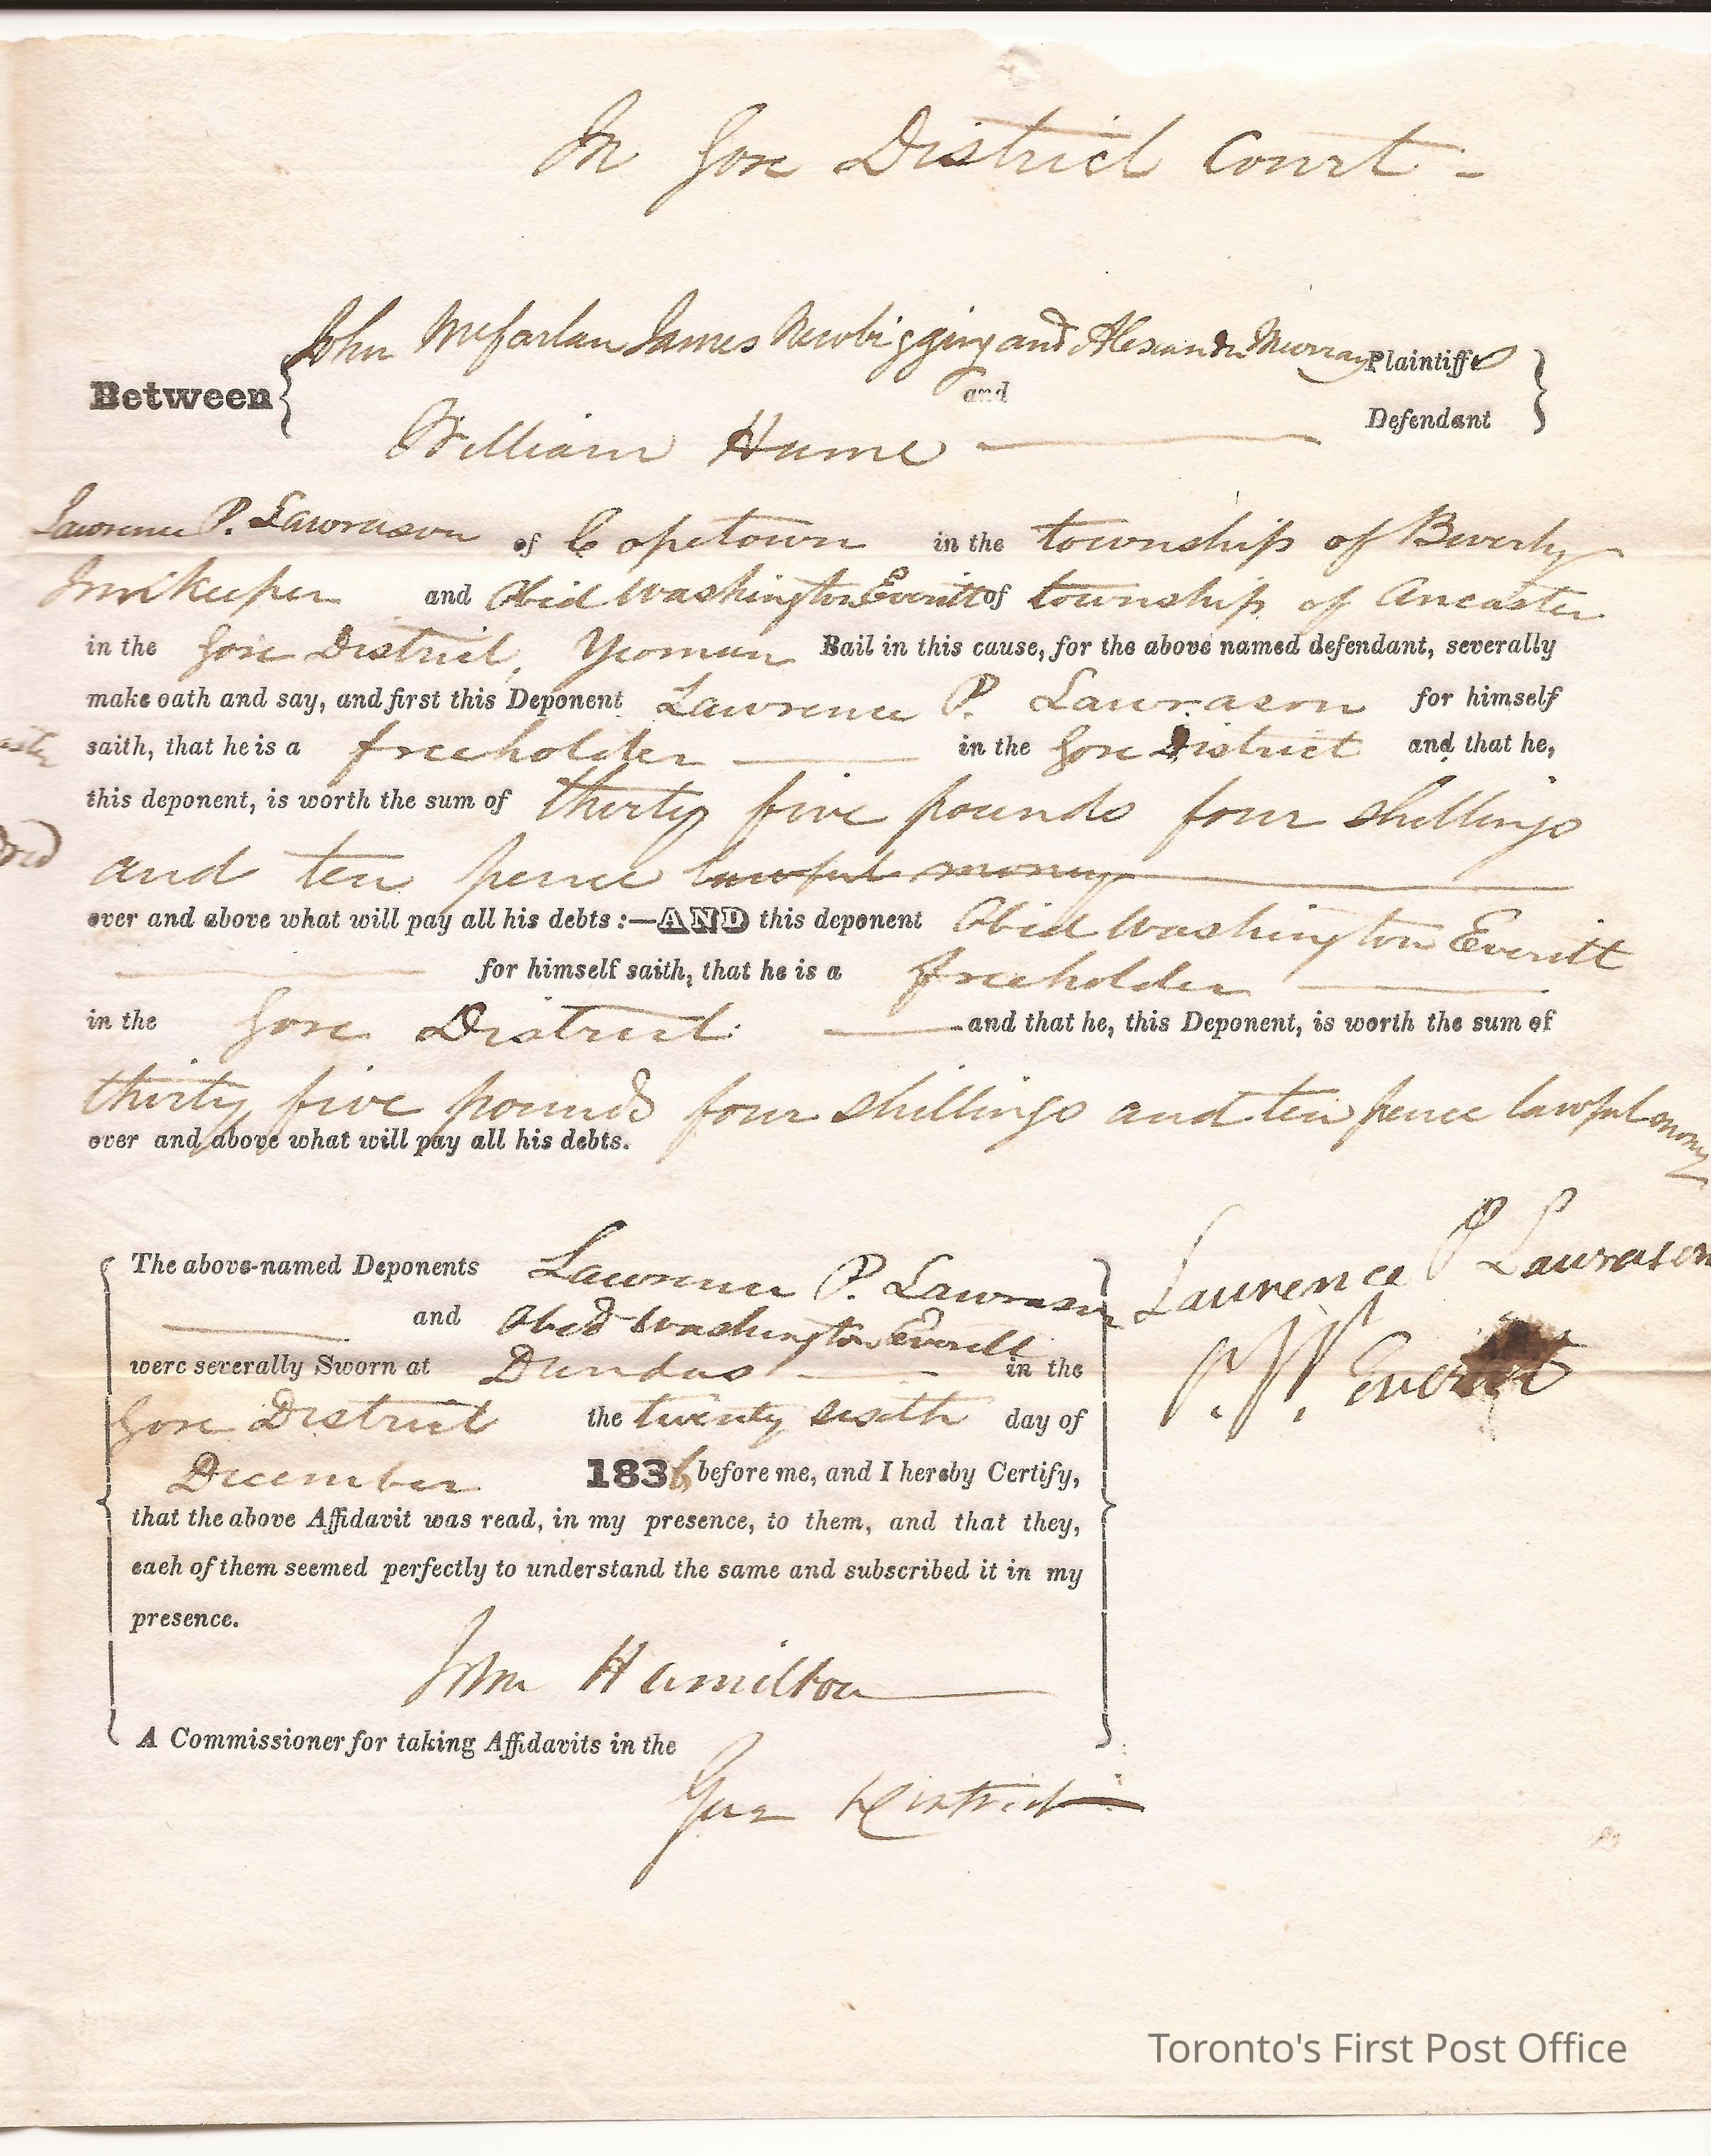 In Gore District Court -
John McFarlan James Newbigging and Alexander Murray Plaintiffs
Between and
William Hume Defendant
Lawrence P. Lawrason of Copetown in the township of Beverly
Innkeeper and Obid Washington Everitt of township of Ancaster
in the Gore District, Yeoman Bail in this cause, for the above named defendant, severally
make oath and say, and first this Deponent Lawrence P. Lawrason for himself
saith, that he is a freeholder in the Gore District and that he,
this deponent, is worth the sum of thirty five pounds four shillings
and ten pence lawful money
over and above what will pay all his debts :—AND this deponent Obid Washington Everitt
for himself saith, that he is a freeholder
in the Gore District and that he, this Deponent, is worth the sum of
thirty five pounds four shillings and ten pence lawful money
over and above what will pay all his debts.
The above-named Deponents Lawrence P. Lawrason
and Obed Washington Everitt
were severally Sworn at Dundas in the
Gore District the twenty sixth day of
December 1836 before me, and I hereby Certify,
that the above Affidavit was read, in my presence, to them, and that they,
each of them seemed perfectly to understand the same and subscribed it in my
presence.
John Hamilton
A Commissioner for taking Affidavits in the
Gore District
Laurence P Lawrason
O. W. Everitt
Toronto's First Post Office